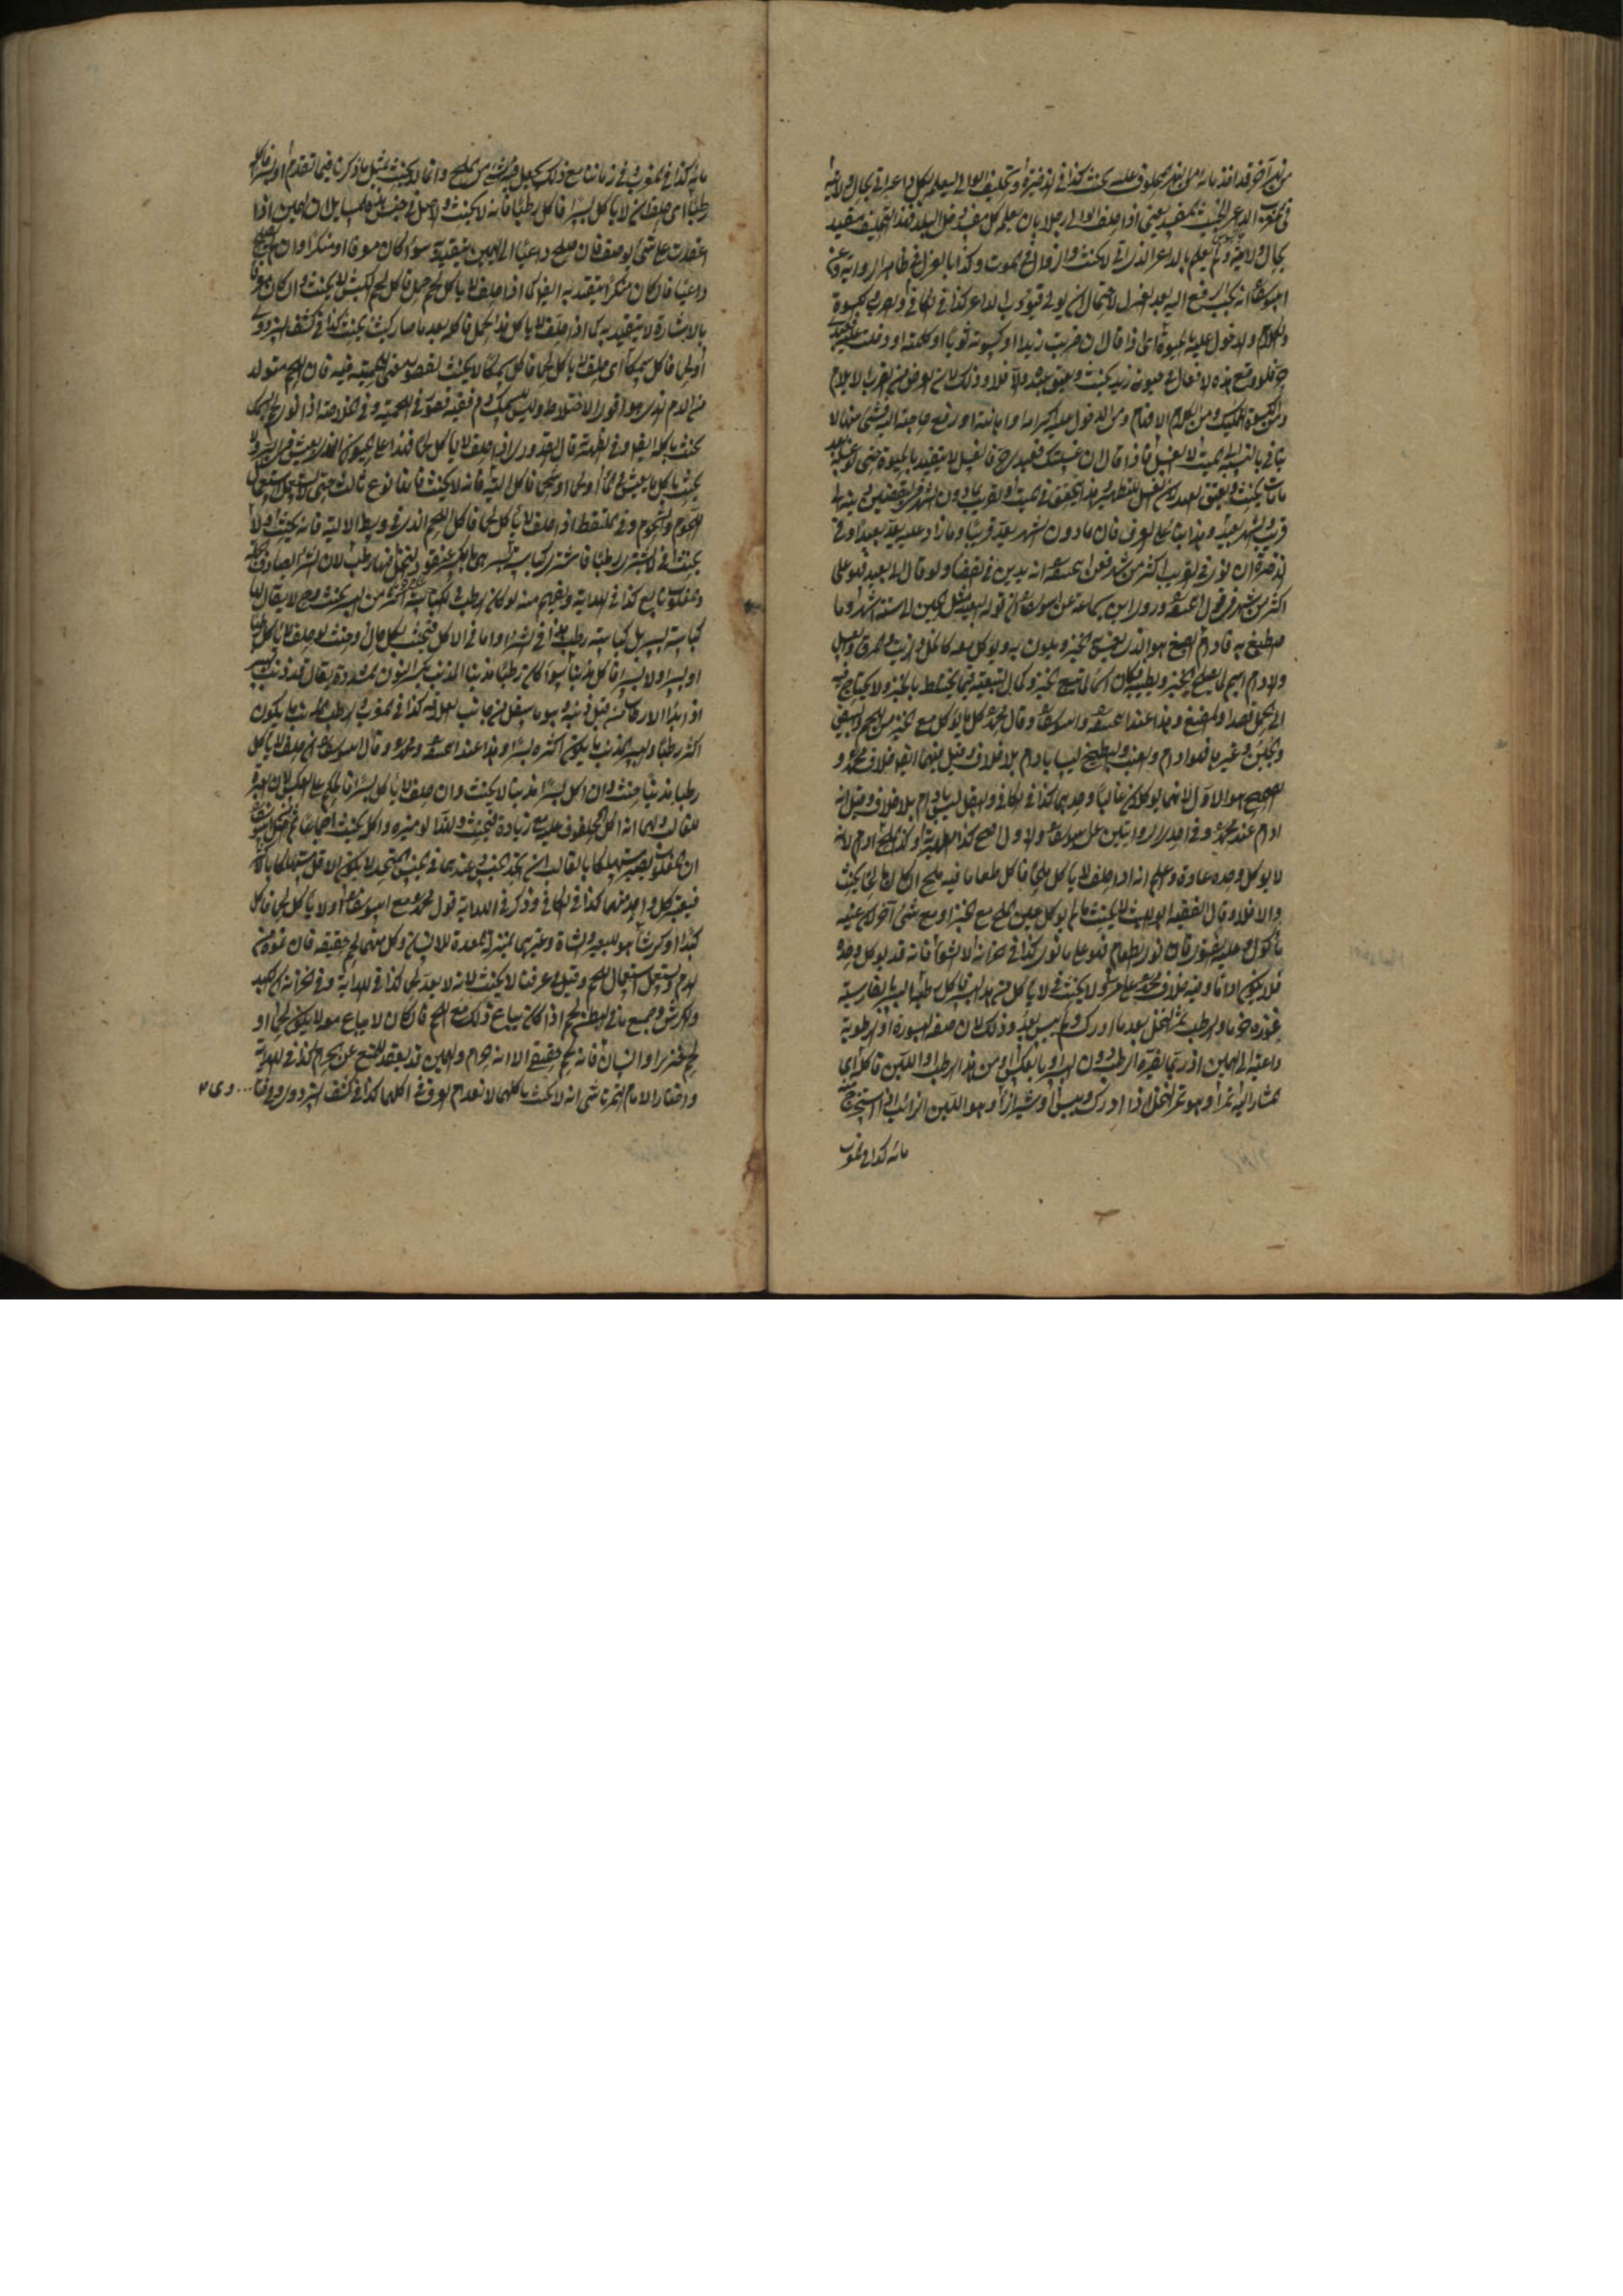 من نهر آخر قد اخذ مائه من النهر المحلوف عليه يحنث كذا في الذخيرة وتحليف الوالي ليعلم بكل داعر اتى بحال ولايته
في المغرب الداعر الخبيث المفسد يعني اذا حلف الوالي رجلا بان يعلم كل مفسد دخل البلد فهذا التحليف مقيد
بحال ولايته ولم يعلم بالداعر الذي اتى لا يحنث وزوالها في الموت وكذا بالعزل في ظاهر الرواية وعن
ابي يوسف انه يجب الرفع اليه بعد العزل لاحتمال ان يولى فيؤدب الداعر كذا في الكافي والضرب والكسوة
والكلام والدخول عليه بالحيوة اي اذا قال ان ضربت زيدا او كسوته ثوبا او كلمته او دخلت عليه فعبدي
حر فلو وقع هذه الافعال في حيوة زيد يحنث ويعتق عبده والا فلا وذلك لان الغرض من الضرب الايلام
ومن الكسوة التمليك ومن الكلام الافهام ومن الدخول عليه اكرامه او اهانته او رفع حاجته اليه فشيء منها لا
يتأتى بالنسبة الى الميت لا الغسل فاذا قال ان غسلتك فعبدي حر فالغسل لا يتقيد بالحيوة حتى لو غسله بعد
ما مات يحنث ويعتق العبد لان الغسل للتطهير وهذا يتحقق في الميت والقريب ما دون الشهر في ليقضين دينه الى
قريب والشهر بعيد وهذا بناء على العرف فان ما دون الشهر يعد قريبا وما زاد عليه يعد بعيدا وفي
الذخيرة ان نوى في القريب اكثر من شهر فعن ابي حنيفة انه يدين في القضاء ولو قال الى بعيد فهو على
اكثر من شهر في قول ابي حنيفة وروى ابن سماعة عن ابي يوسف ان قوله الى بعيد مثل الحين لستة اشهر وما
اصطبغ به فادام الصبغ هو الذي يغمس الخبز ويلون به ويؤكل معه كالخل والزيت والمرق والعسل
والادام اسم لما يصلح الخبز ويطيبه فكان اسما لما يتبع الخبز وكمال التبعية فيما يختلط بالخبز ولا يحتاج فيه
الى الحمل قصدا والمضغ وهذا عند ابي حنيفة وابي يوسف وقال محمد كل ما يؤكل مع الخبز من اللحم والبيض
والجبن وغيرها فهو ادام والعنب والبطيخ ليسا بادام بلا خلاف وقيل فيهما ايضا خلاف محمد و
الصحيح هو الاول لانهما يؤكلان غالبا وحدهما كذا في الكافي والبقل ليس بادام بلا خلاف وقيل انه
ادام عند محمد وفي احدى الروايتين عن ابي يوسف والاول اصح كذا في الظهيرية وكذا الملح ادام لانه
لا يؤكل وحده عادة وعلم انه اذا حلف لا يأكل ملحا فاكل طعاما فيه ملح ان كان مالحا يحنث
والا فلا وقال الفقيه ابو الليث لا يحنث ما لم يأكل عين الملح مع الخبز او مع شيء آخر لان عينه
مأكول وعليه الفتوى فان نوى الطعام فهو على ما نوى كذا في الخزانة لا الشواء فانه قد يؤكل وحده
فلا يكون اداما وفيه خلاف محمد على ما مر ولا يحنث في لا يأكل من هذا البسر فاكل رطبه البسر بالفارسية
غوره خرما والرطب ثمر النخل بعد ما ادرك ولم ييبس بعد وذلك لان صفة البسورة او الرطوبة
داعية الى اليمين اذ ربما يضره الرطب دون البسر او بالعكس ومن هذا الرطب او اللبن فاكل اي
المشار اليه تمرا وهو تمر النخل اذا ادرك ويبس او شيرازا وهو اللبن الرائب اذا استخرج منه
مائه كذا في المغرب
مائه كذا في المغرب وفي زماننا مع ذلك يجعل فيه شيء من الملح وانما لا يحنث بمثل ما ذكرنا فيما تقدم او بسرا فاكل
رطبا اي حلف ان لا يأكل بسرا فاكل رطبا فانه لا يحنث والاصل في جنس هذه المسائل ان اليمين اذا
انعقدت على شيء بوصف فان صلح داعيا الى اليمين يتقيد به سواء كان معرفا او منكرا وان لم يصلح
داعيا فان كان منكرا يتقيد به ايضا كما اذا حلف لا يأكل لحم حمل فاكل لحم الكبش لا يحنث وان كان معرفا
بالاشارة لا يتقيد به كما اذا حلف لا يأكل هذا الحمل فاكله بعد ما صار كبشا يحنث كذا في كشف البزدوي
او لحما فاكل سمكا اي حلف لا يأكل لحما فاكل سمكا لا يحنث لقصور معنى اللحمية فيه فان اللحم متولد
من الدم الذي هو اقوى الاخلاط وليس للسمك دم ففيه قصور في اللحمية وفي الخلاصة اذا نوى لحم السمك
يحنث باكله ايضا وفي الظهيرية قال الخدوري اذا حلف لا يأكل لحما فهذا على الحيوان الذي يعيش في البر ولا
يحنث باكل ما يعيش في الماء او لحما او شحما فاكل الية فانه لا يحنث فانها نوع ثالث حتى لا تستعمل استعمال
اللحوم والشحوم وفي الملتقط اذا حلف لا يأكل لحما فاكل اللحم الذي في وسط الالية فانه يحنث ولا
يحنث في لا يشتري رطبا فاشترى كباسة بسر هي بالكسر عنقود النخل فيها رطب لان الشراء يصادف جملة
والمغلوب تابع كذا في الهداية ويفهم منه لو كان الرطب في الكباسة اكثر من البسر يحنث وح لا يقال لها
كباسة بسر بل كباسة رطب هذا في الشراء واما في الاكل فيحنث بكل حال وحنث لو حلف لا يأكل رطبا
او بسرا ولا بسرا فاكل مذنبا سواء كان رطبا مذنبا المذنب بكسر النون المشددة يقال قد ذنب البسر
اذا بدا الارطاب من قبل ذنبه وهو ما سفل من جانب العلاقة كذا في المغرب والرطب المذنب ما يكون
اكثره رطبا والبسر المذنب ما يكون اكثره بسرا وهذا عند ابي حنيفة ومحمد وقال ابو يوسف ان حلف لا يأكل
رطبا مذنبا حنث وان اكل بسرا مذنبا لا يحنث وان حلف لا يأكل بسرا فالحكم على العكس لان العبرة
للغالب ولهما انه اكل المحلوف عليه مع زيادة فيحنث ولهذا لو ميزه واكله يحنث اجماعا
ان المغلوب يصير مستهلكا بالغالب
فيعتبر كل واحد منهما كذا في الكافي وذكر في الهداية قول محمد مع ابي يوسف او لا يأكل لحما فاكل
كبدا او كرشا هو للبعير والشاة وغيرهما بمنزلة المعدة للانسان وكل منهما لحم حقيقة فان نموه من
الدم ويستعمل استعمال اللحم وقيل في عرفنا لا يحنث لانه لا يعد لحما كذا في الهداية وفي الخزانة ان الكبد
والكرش وجميع ما في البطن لحم اذا كان يباع ذلك مع اللحم فان كان لا يباع معه لا يكون لحما او
لحم خنزير او انسان فانه لحم حقيقي الا انه حرام واليمين قد ينعقد للمنع عن الحرام كذا في الهداية
واختار الامام التمرتاشي انه لا يحنث باكلهما لانعدام العرف في اكلهما كذا في كشف البزدوي